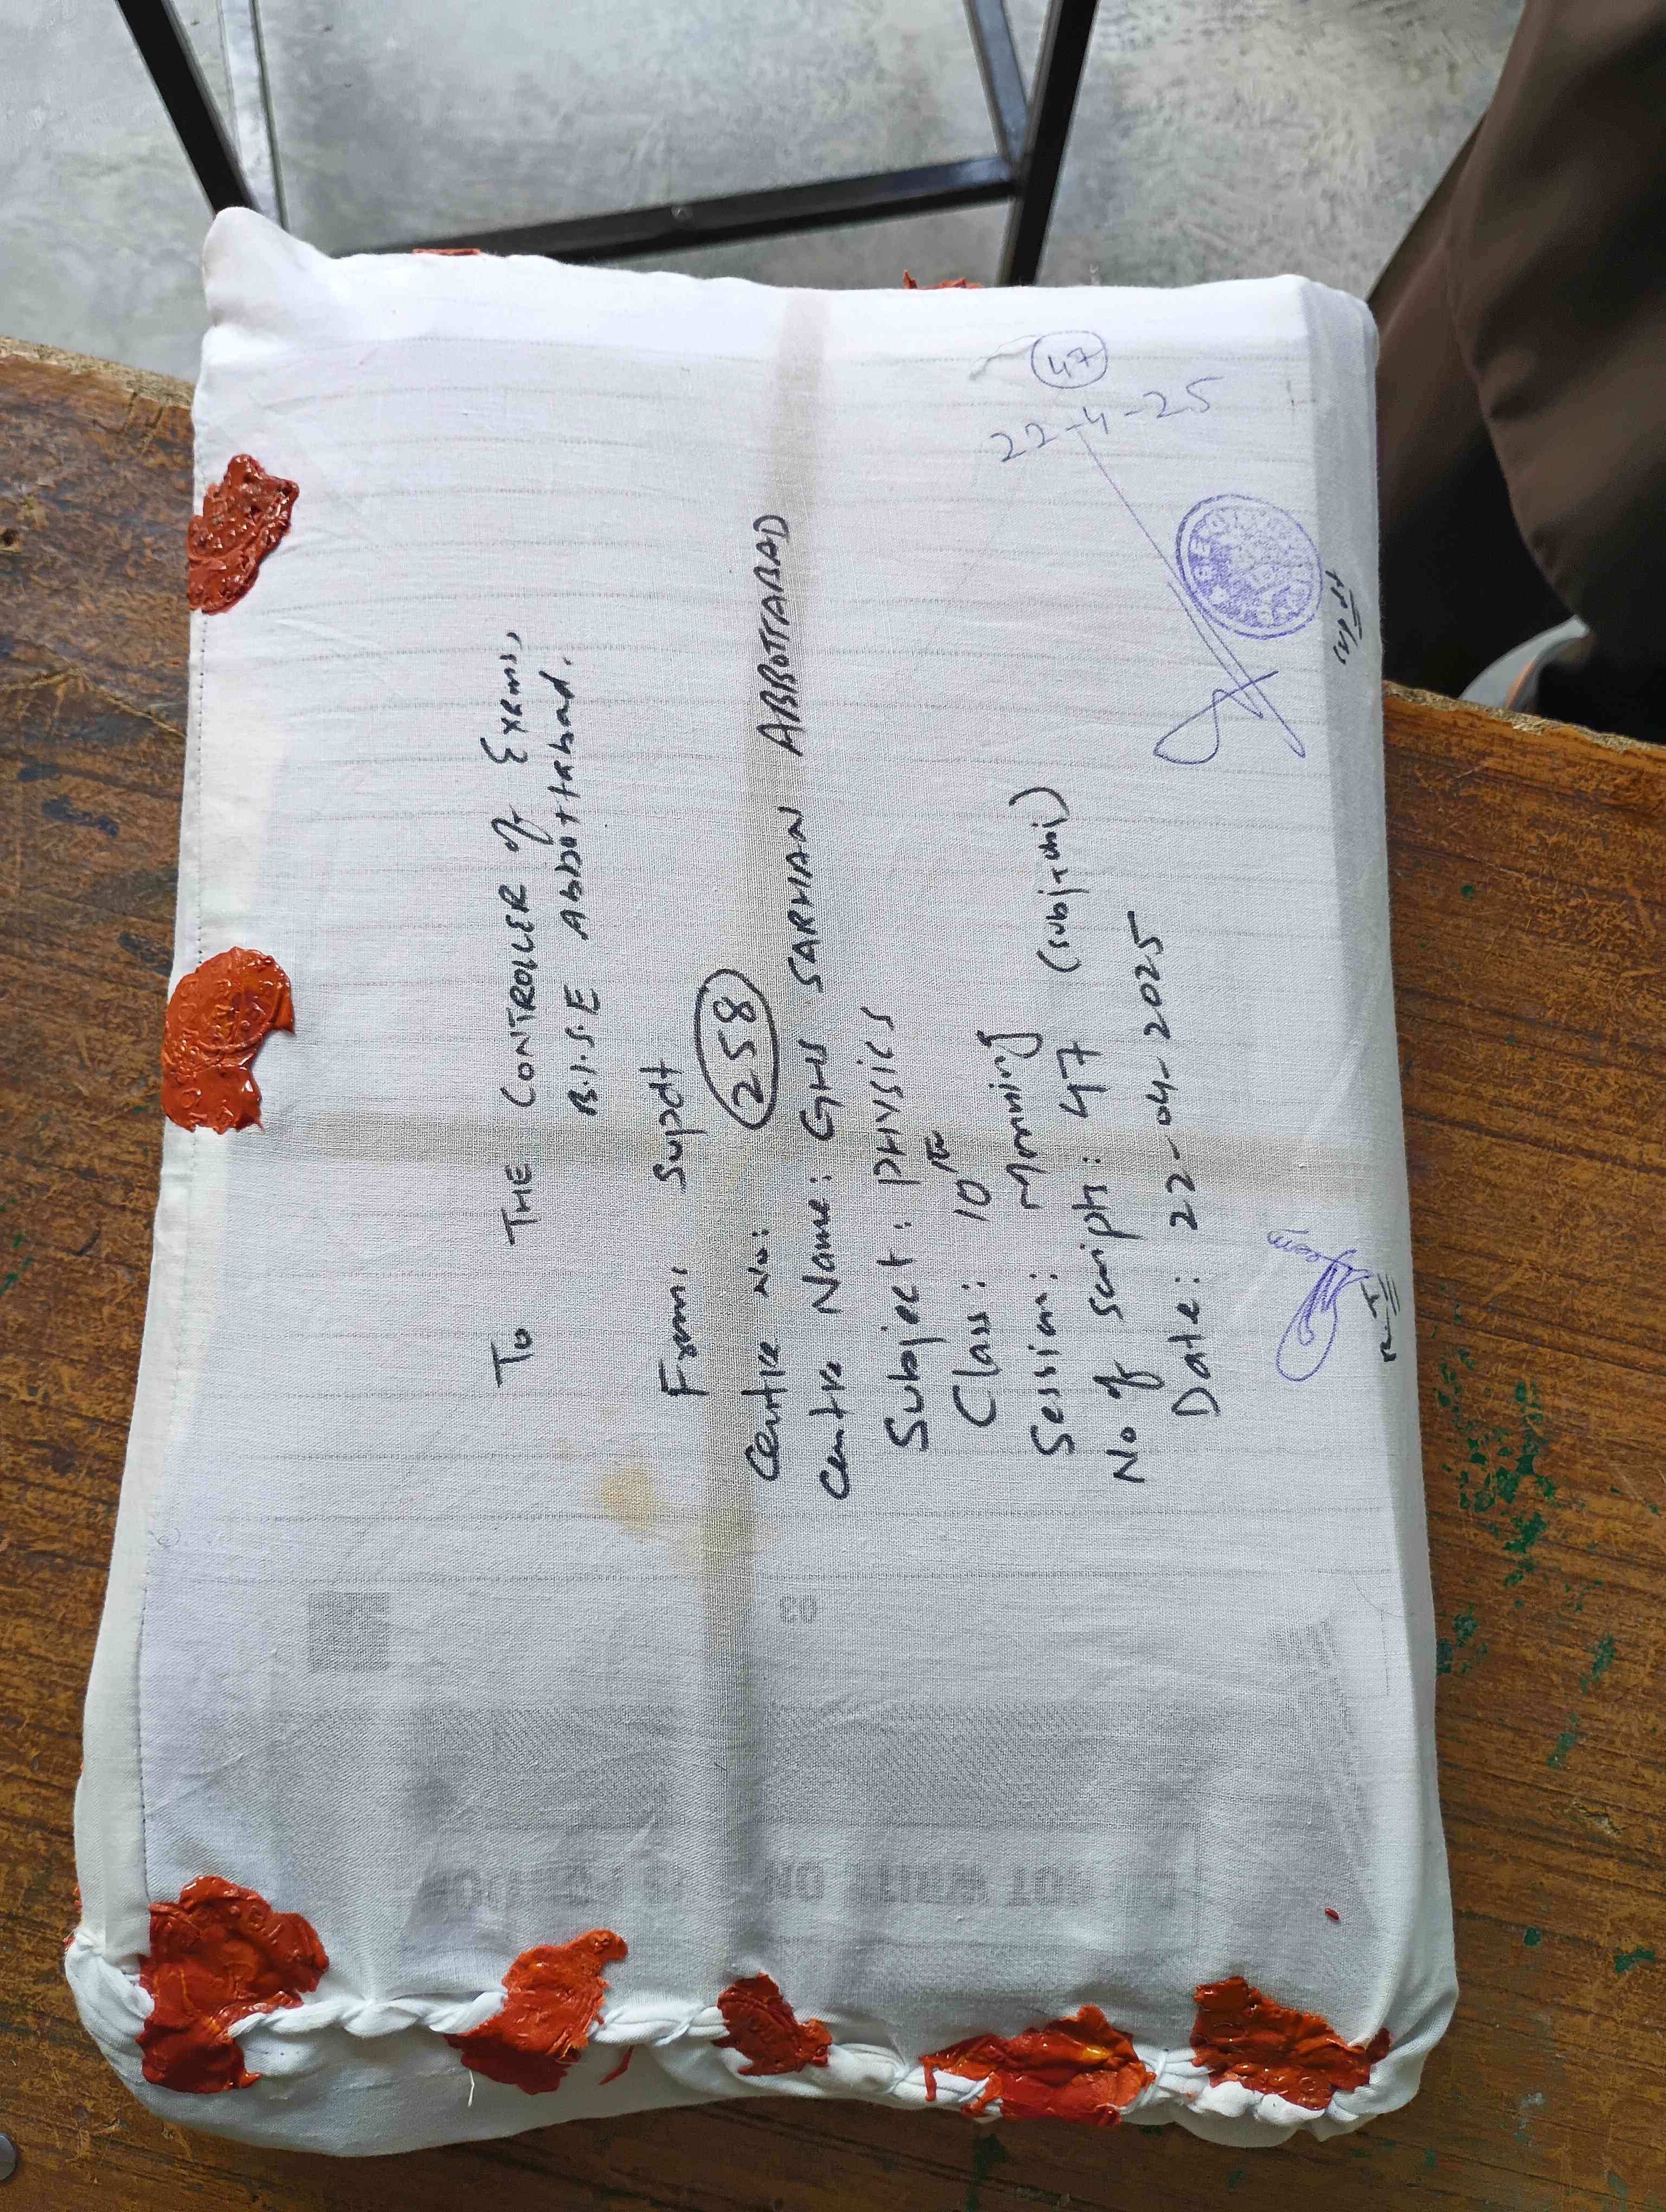 To THE CONTROLLER of Exams,
B.I.S.E Abbottabad.
From: Supdt
Centre No: 258
Centre Name: GHS SARHAN ABBOTTABAD
Subject: PHYSICS
Class: 10th
Session: Morning
No of scripts: 47 (subjective)
Date: 22-04-2025
47
22-4-25
03